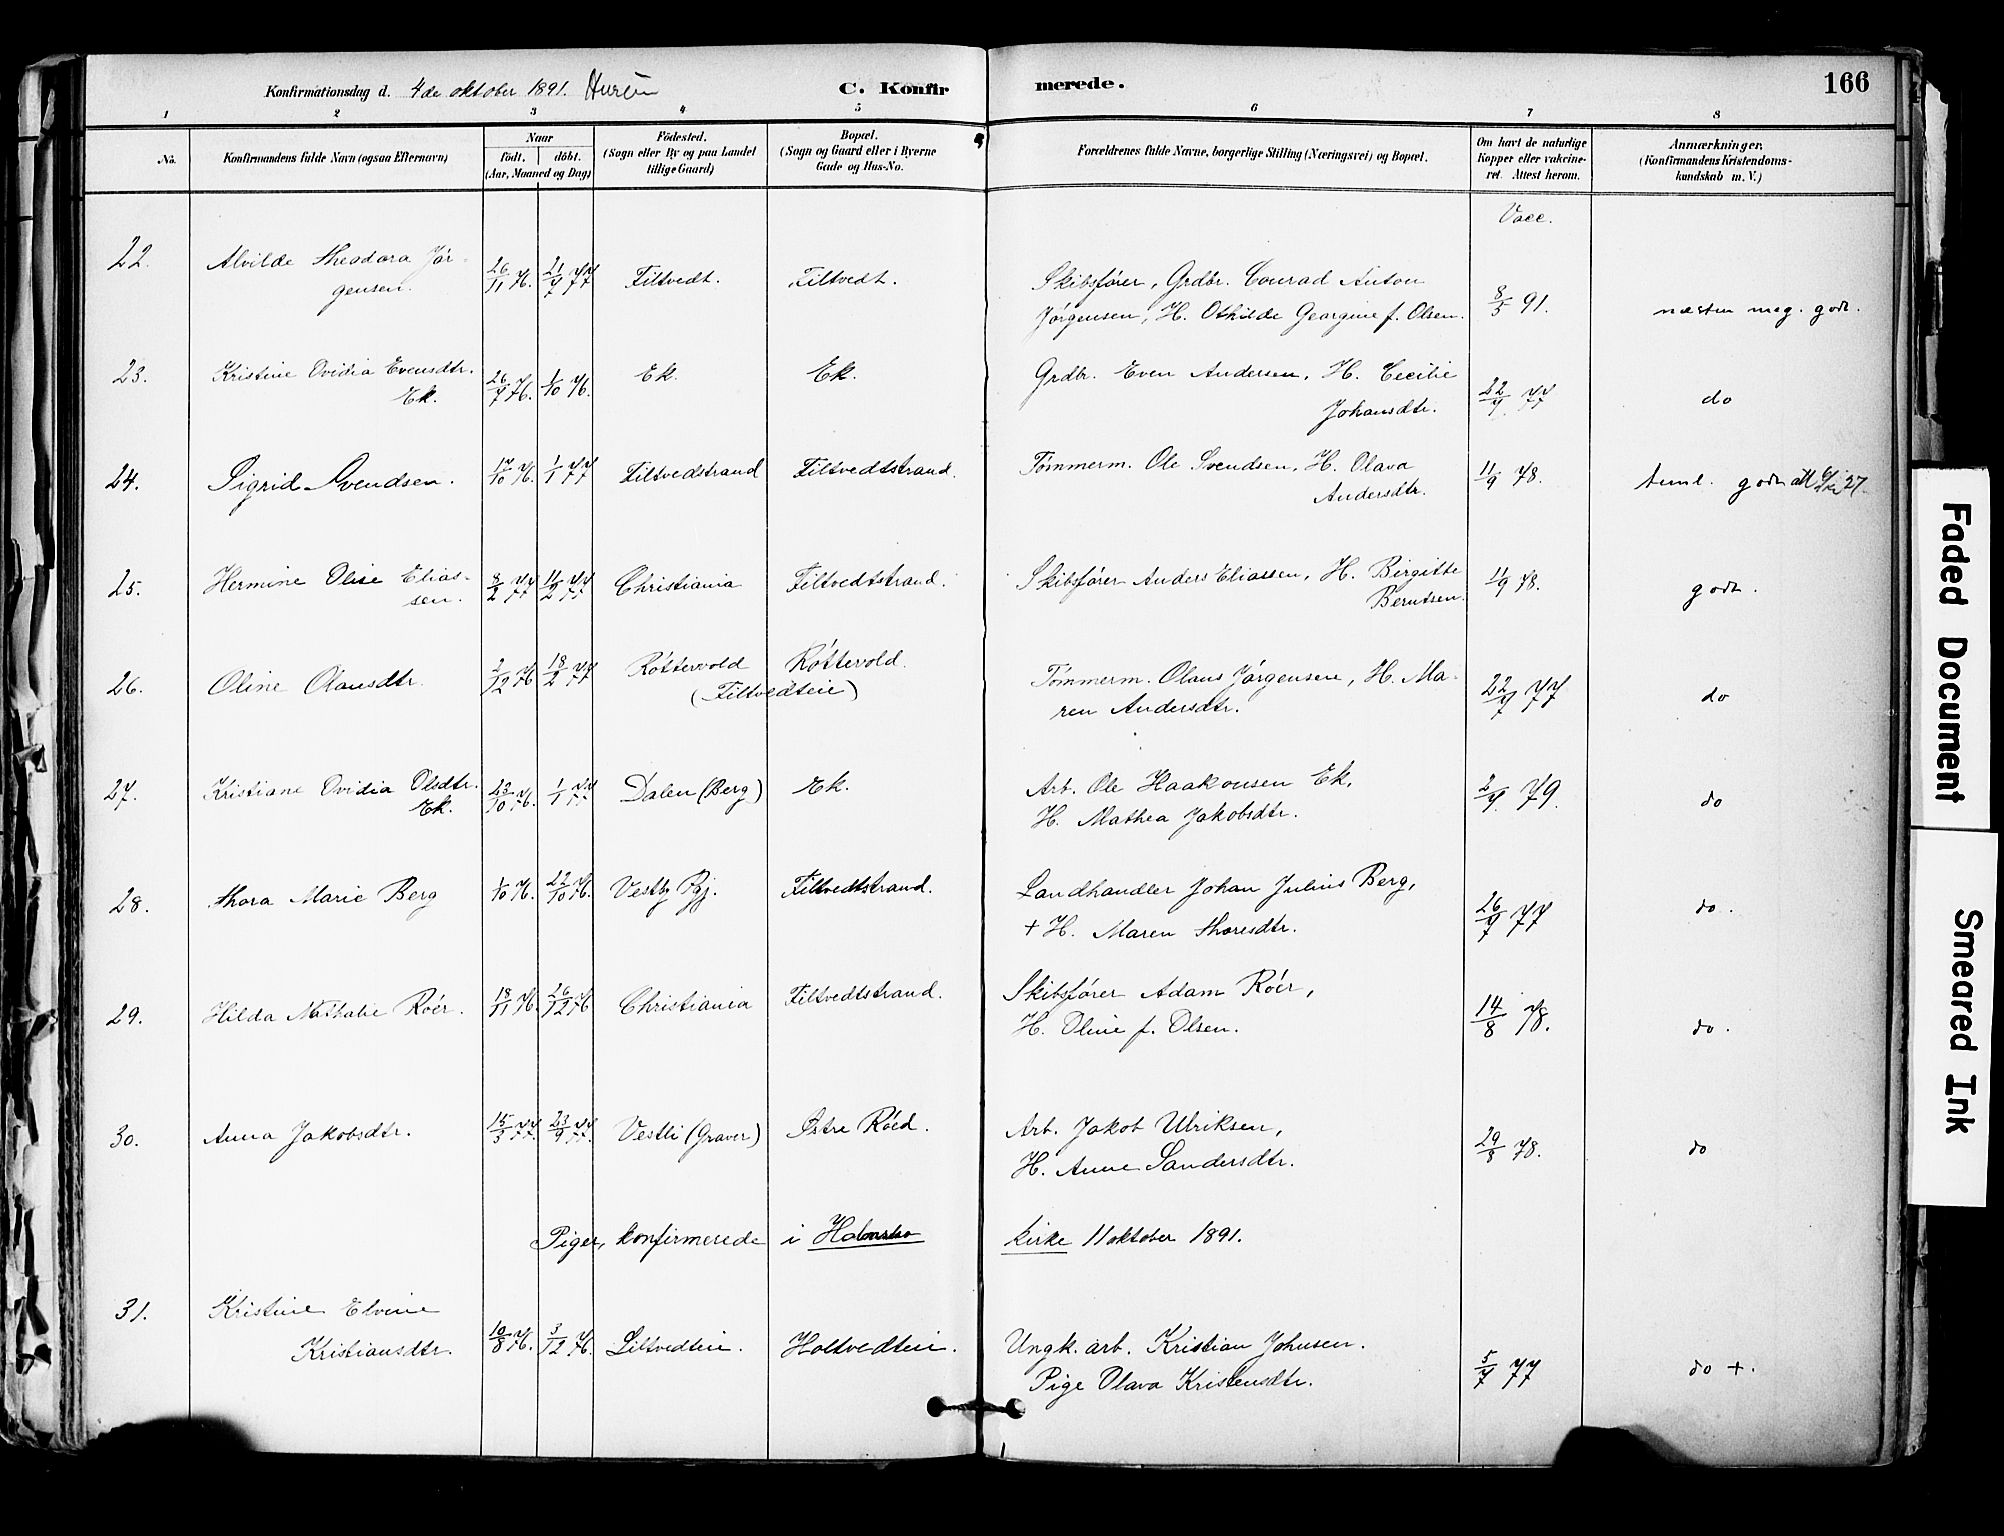 Konfirmationsdag d. 4de oktober 1891. C. Konfirmerede. 166
1 2 3 4 5 6 7 8
No. Konfirmandens fulde Navn (ogsaa Efternavn) Naar födt. döbt. (Aar, Maaned og Dag) Födested. (Sogn eller By og paa Landet tillige Gaard) Bopæl. (Sogn og Gaard eller i Byerne Gade og Hus-No. Forældrenes fulde Navne, borgerlige Stilling (Næringsvei) og Bopæl. Om havt de naturlige Kopper eller vakcineret. Attest herom. Anmærkninger, (Konfirmandens Kristendomskundskab m. V.)
Vacc.
22. Alvilde Theodora Jörgensen. 26/11 76. 21/7 77 Filtvedt. Filtvedt. Skibsförer, Grdbr. Conrad Anton
Jörgensen, H. Othilde Georgine f. Olsen. 8/5 91. næsten meg. godt.
23. Kristine Ovidia Evensdtr. Ek. 26/7 76. 1/10 76. Ek. Ek. Grdbr. Even Andersen, H. Cecilie
Johansdtr. 22/9 77 do
24. Sigrid Svendsen. 17/10 76. 1/1 77 Filtvedstrand Filtvedtstrand. Tömmerm. Ole Svendsen, H. Olava
Andersdtr. 11/9 78. teml. godt
25. Hermine Olise Eliassen. 8/2 77 11/2 77 Christiania Filtvedtstrand. Skibsförer Anders Eliassen, H. Birgitte
Berntsen. 11/9 78. godt.
26. Oline Olausdtr. 2/12 76 18/2 77 Röttervold Röttervold.
(Filtvedteie) Tömmerm. Olaus Jörgensen, H. Maren Andersdtr. 22/9 77 do
27. Kristiane Ovidia Olsdtr. Ek. 23/10 76. 1/1 77 Dalen (Berg) Ek. Arb. Ole Haakonsen Ek,
H. Mathea Jakobsdtr. 2/9 79. do
28. Thora Marie Berg 1/10 76. 22/10 76. Vestby Pgj. Filtvedtstrand. Landhandler Johan Julius Berg,
+ H. Maren Thoresdtr. 26/9 77 do.
29. Hilda Nathalie Röer. 18/11 76. 26/12 76 Christiania Filtvedtstrand. Skibsförer Adam Röer,
H. Oline f. Olsen. 14/8 78. do.
30. Anna Jakobsdtr. 15/3 77. 23/9 77. Vestli (Graver) Östre Röed. Arb. Jakob Ulriksen,
H. Anne Sandersdtr. 29/8 78. do
Piger, konfirmerede i Holmsbo kirke 11 oktober 1891.
31. Kristine Elvine
Kristiansdtr. 10/8 76. 3/12 76. Filtvedteie. Holtvedteie. Ungk. arb. Kristian Johnsen.
Pige Olava Kristensdtr. 5/7 77 do +.
Faded Document
Smeared Ink